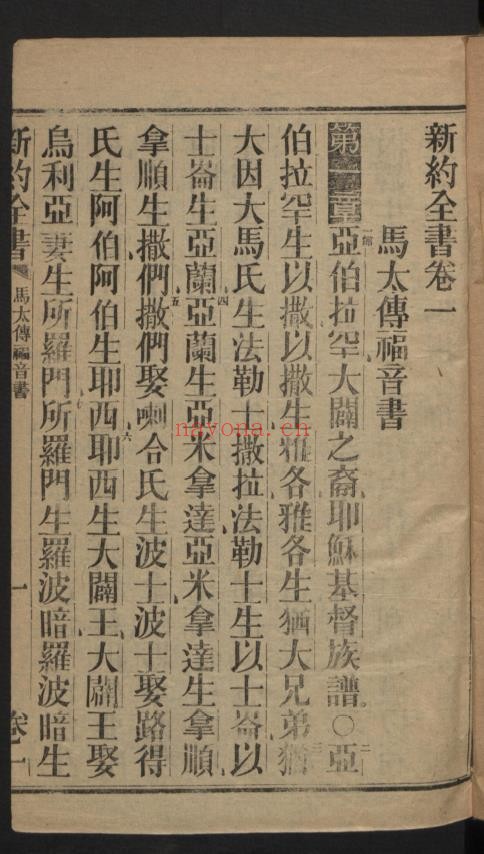 新約全書卷一
馬太傳福音書
第一章 一節 亞伯拉罕大闢之裔耶穌基督族譜○二亞
伯拉罕生以撒以撒生雅各雅各生猶大兄弟三猶
大因大馬氏生法勒士撒拉法勒士生以士崙以
士崙生亞蘭四亞蘭生亞米拿達亞米拿達生拿順
拿順生撒們五撒們娶喇合氏生波士波士娶路得
氏生阿伯阿伯生耶西六耶西生大闢王大闢王娶
烏利亞妻生所羅門七所羅門生羅波暗羅波暗生
新約全書 馬太傳福音書 一 卷一
nayona.cn